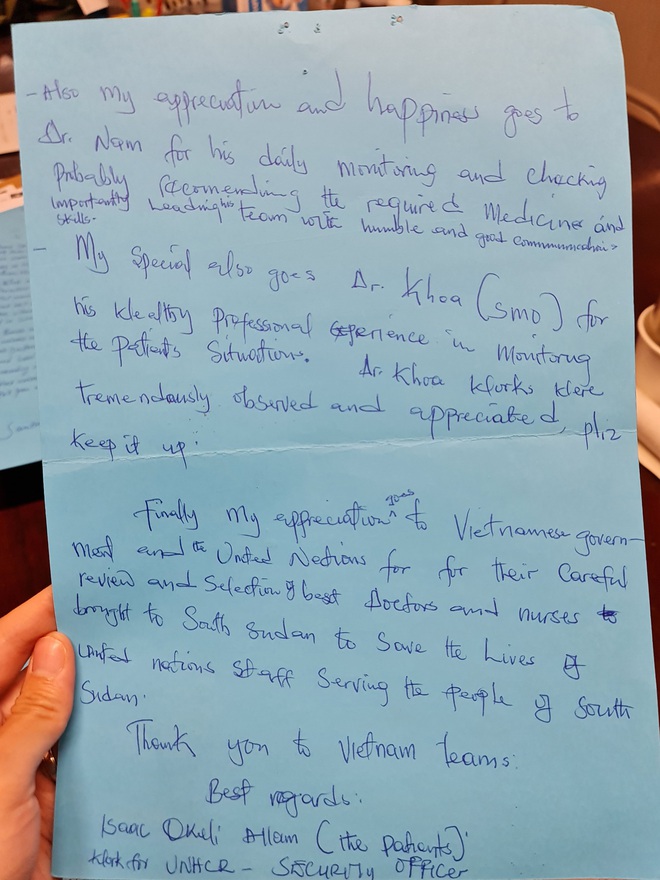 - Also my appreciation and happiness goes to
Dr. Nam for his daily monitoring and checking
Probably Recomending the required Medicine and
importantly Leading his team with humble and good communication
skills.
- My Special also goes Dr. Khoa (SMO) for
his Wealthy Professional Experience in monitoring
the patients Situations. Dr Khoa Works Were
tremendously observed and appreciated, pliz
keep it up.
Finally my appreciation goes to Vietnamese govern-
ment and the United Nations for for their Careful
review and Selection of best Doctors and nurses
brought to South Sudan to Save the Lives of
United nations Staff Serving the people of South
Sudan.
Thank you to Vietnam teams.
Best regards.
Isaac Okeli Allam (the patients).
Work for UNHCR - SECURITY OFFICER